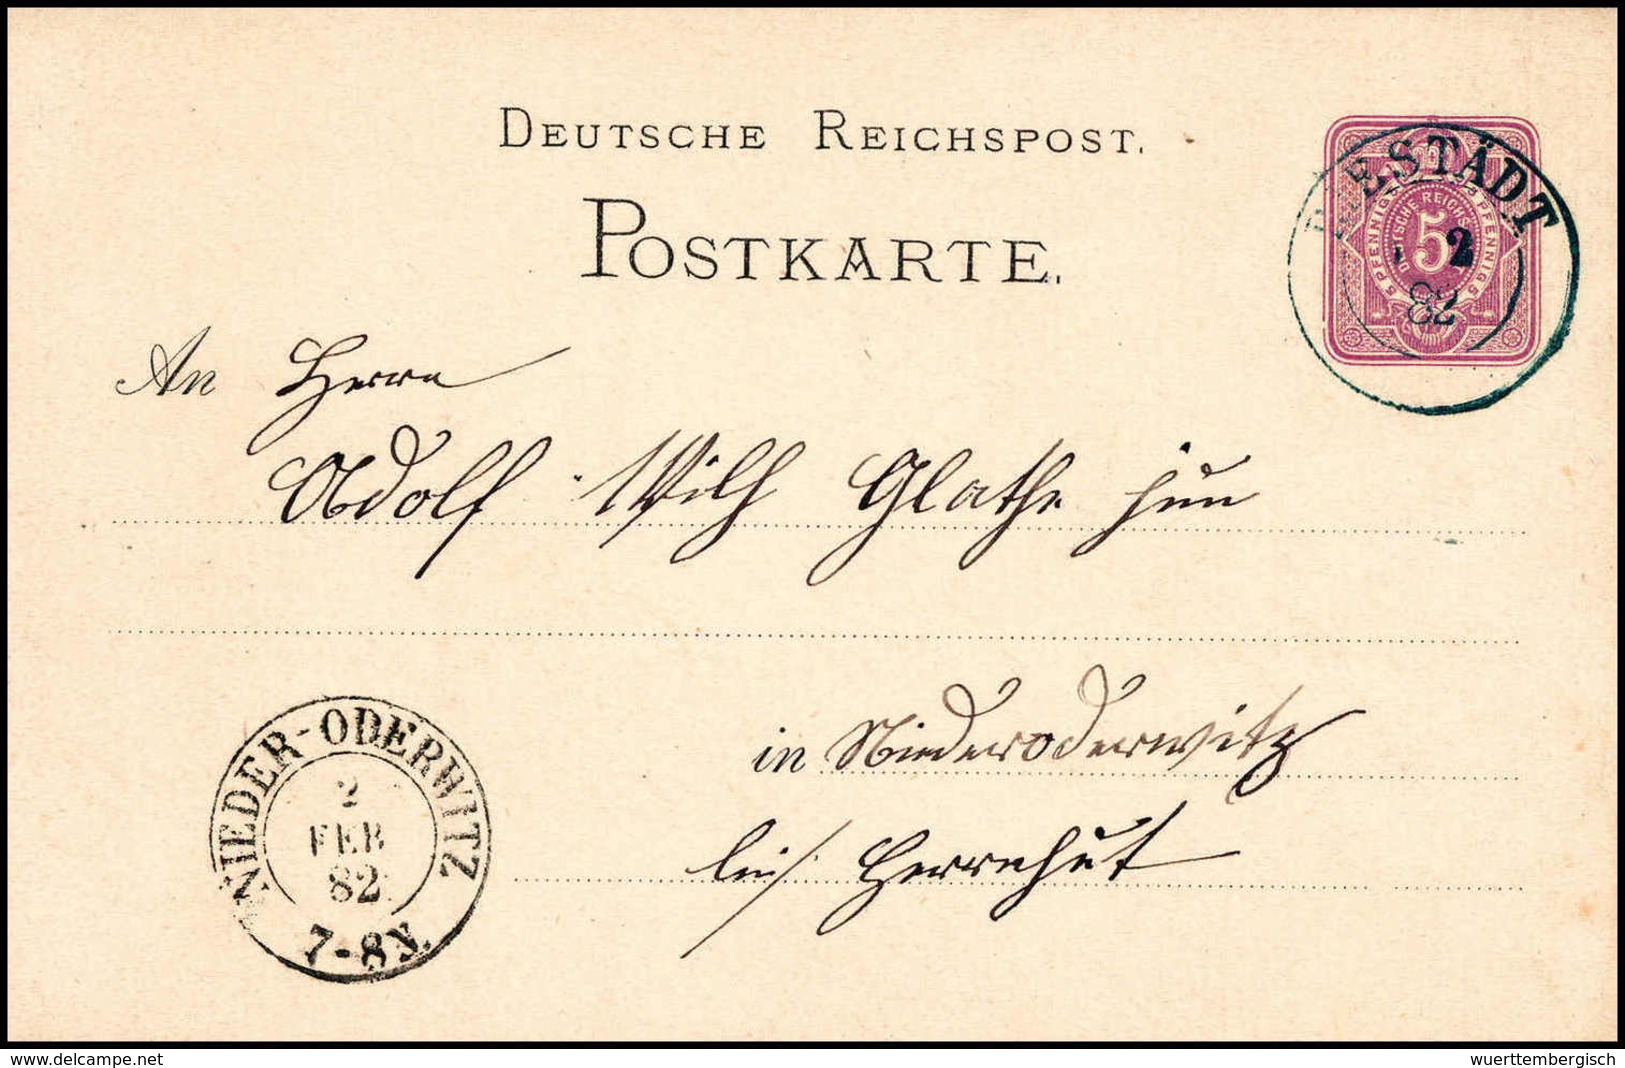 DEUTSCHE REICHSPOST.
POSTKARTE.
5 PFENNIG 5 PFENNIG
DEUTSCHE REICHS
5
RIESTÄDT
2
82
An Herrn
Adolf Wilh Glathe jun
in Niederoderwitz
bei/ Herrnhut
NIEDER-ODERWITZ
2
FEB
82
7-8 N.
www.delcampe.net
wuerttembergisch